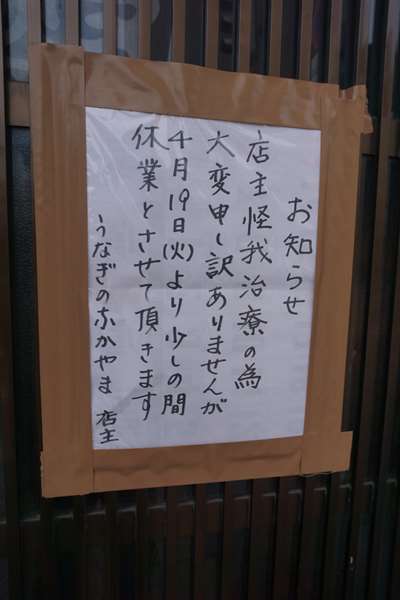 お知らせ
店主怪我治療の為
大変申し訳ありませんが
4月19日(火)より少しの間
休業とさせて頂きます
うなぎのなかやま 店主